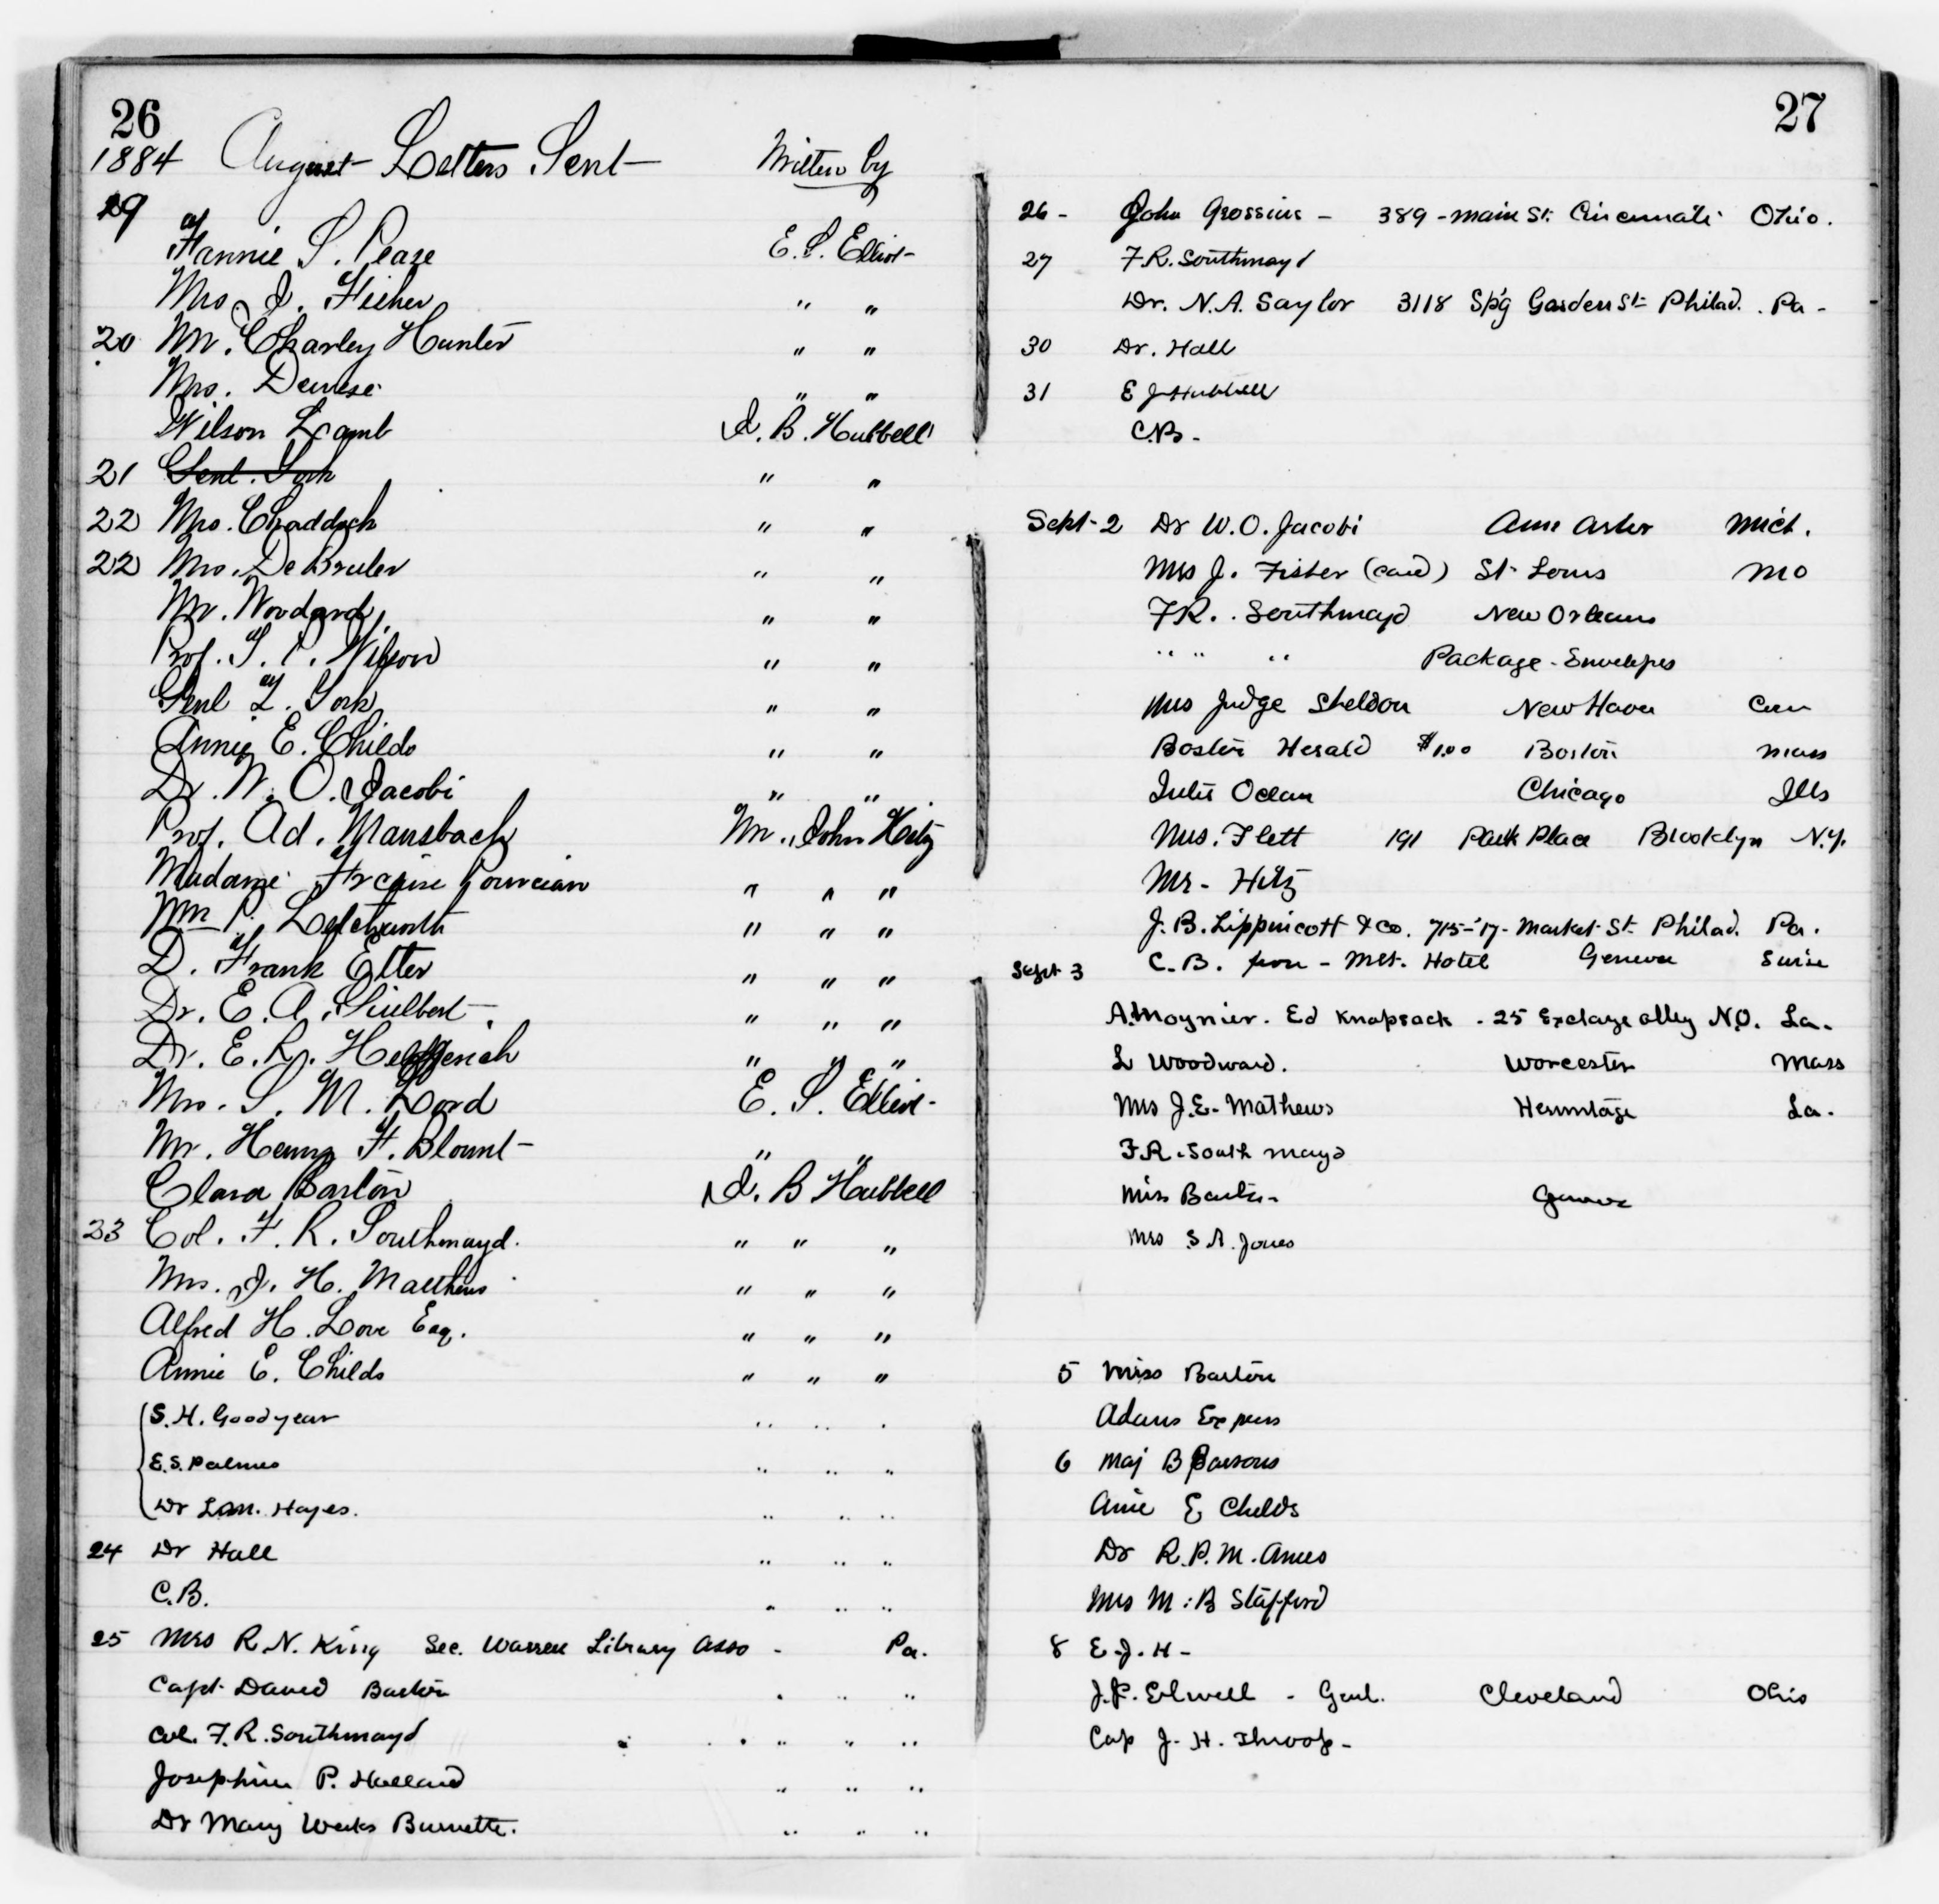 26
1884 August Letters Sent Written by
19
Fannie S. Pease E. S. Elliot
Mrs J. Fisher " "
20 Mr. Charley Hunter " "
Mrs. Demese " "
Wilson Lamb J. B. Hubbell
21 Genl. York " "
22 Mrs. Chaddock " "
22 Mrs. De Bruler " "
Mr. Woodard " "
Prof. S. P. Wilson " "
Genl Z. York " "
Annie E. Childs " "
Dr. W. O. Jacobi " "
Prof. Ad. Mansbach Mr. John Hitz
Madame " " "
Wm P. Letchworth " " "
D. Frank Etter " " "
Dr. E. A. Guilbert " " "
Dr. E. R. " " "
Mrs. S. M. Lord E. S. Elliot
Mr. Henry F. Blount " "
Clara Barton J. B Hubbell
23 Col. F. R. Southmayd. " " "
Mrs. J. H. Matthews " " "
Alfred H. Love Esq. " " "
Annie E. Childs " " "
S. H. Goodyear " " "
E. S. Palmer " " "
Dr Hayes. " " "
24 Dr Hall " " "
C. B. " " "
25 Mrs R. N. King Sec. Warren Library Asso - Pa.
Capt David Barton " " "
Col. F. R. Southmayd " " "
Josephine P. Holland " " "
Dr Mary Weeks Burnette. " " "
27
26 - John Grossius - 389 - Main St. Cincinnati Ohio.
27 F. R. Southmayd
Dr. N. A. Saylor 3118 Sp'g Garden St Philad. Pa -
30 Dr. Hall
31 E J Hubbell
C. B -
Sept - 2 Dr W. O. Jacobi Ann Arbor Mich.
Mrs J. Fisher (card) St Louis Mo
F R. Southmayd New Orleans
" " " Package - Envelopes
Mrs Judge Sheldon New Haven Con
Boston Herald $1.00 Boston Mass
Inter Ocean Chicago Ills
Mrs. Flett 191 Park Place Brooklyn N. Y.
Mr - Hitz
J. B. Lippincott & Co. 715-'17 - Market St. Philad. Pa.
Sept 3 C. B. from - Met. Hotel Geneva Suise
A. Moynier. Ed Knapsack . 25 Exclage alley N. O. La.
L Woodward. Worcester Mass
Mrs J. E. Mathews Hermitage La.
F. R. Southmayd
Miss Barton - Geneva
Mrs S. A. Jones
5 Miss Barton
Adams Express
6 Maj B Parsons
Anie E Childs
Dr R. P. M. Ames
Mrs M. B Stafford
8 E. J. H -
J. J. Elwell - Genl. Cleveland Ohio
Cap J. H. Throop -